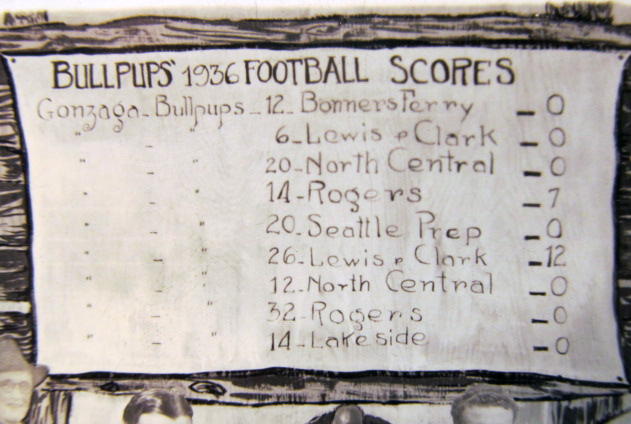 BULLPUPS' 1936 FOOTBALL SCORES
Gonzaga - Bullpups - 12 - Bonners Ferry - 0
" - " 6 - Lewis & Clark - 0
" - " 20 - North Central - 0
" - " 14 - Rogers - 7
" - " 20 - Seattle Prep - 0
" - " 26 - Lewis & Clark - 12
" - " 12 - North Central - 0
" - " 32 - Rogers - 0
" - " 14 - Lakeside - 0